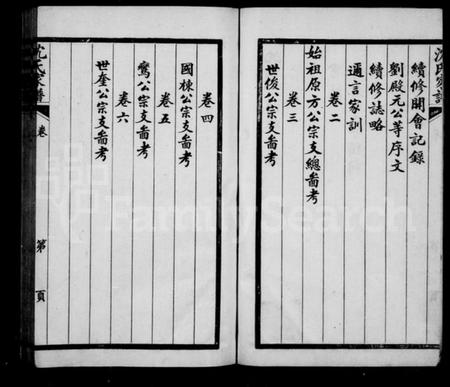 續修開會記錄
劉殿元公等序文
續修誌略
邇言家訓
卷二
始祖原方公宗支總啚考
卷三
世俊公宗支啚考
卷四
國棟公宗支啚考
卷五
鸞公宗支啚考
卷六
世奎公宗支啚考
沈氏家譜
卷
第 頁
FamilySearch